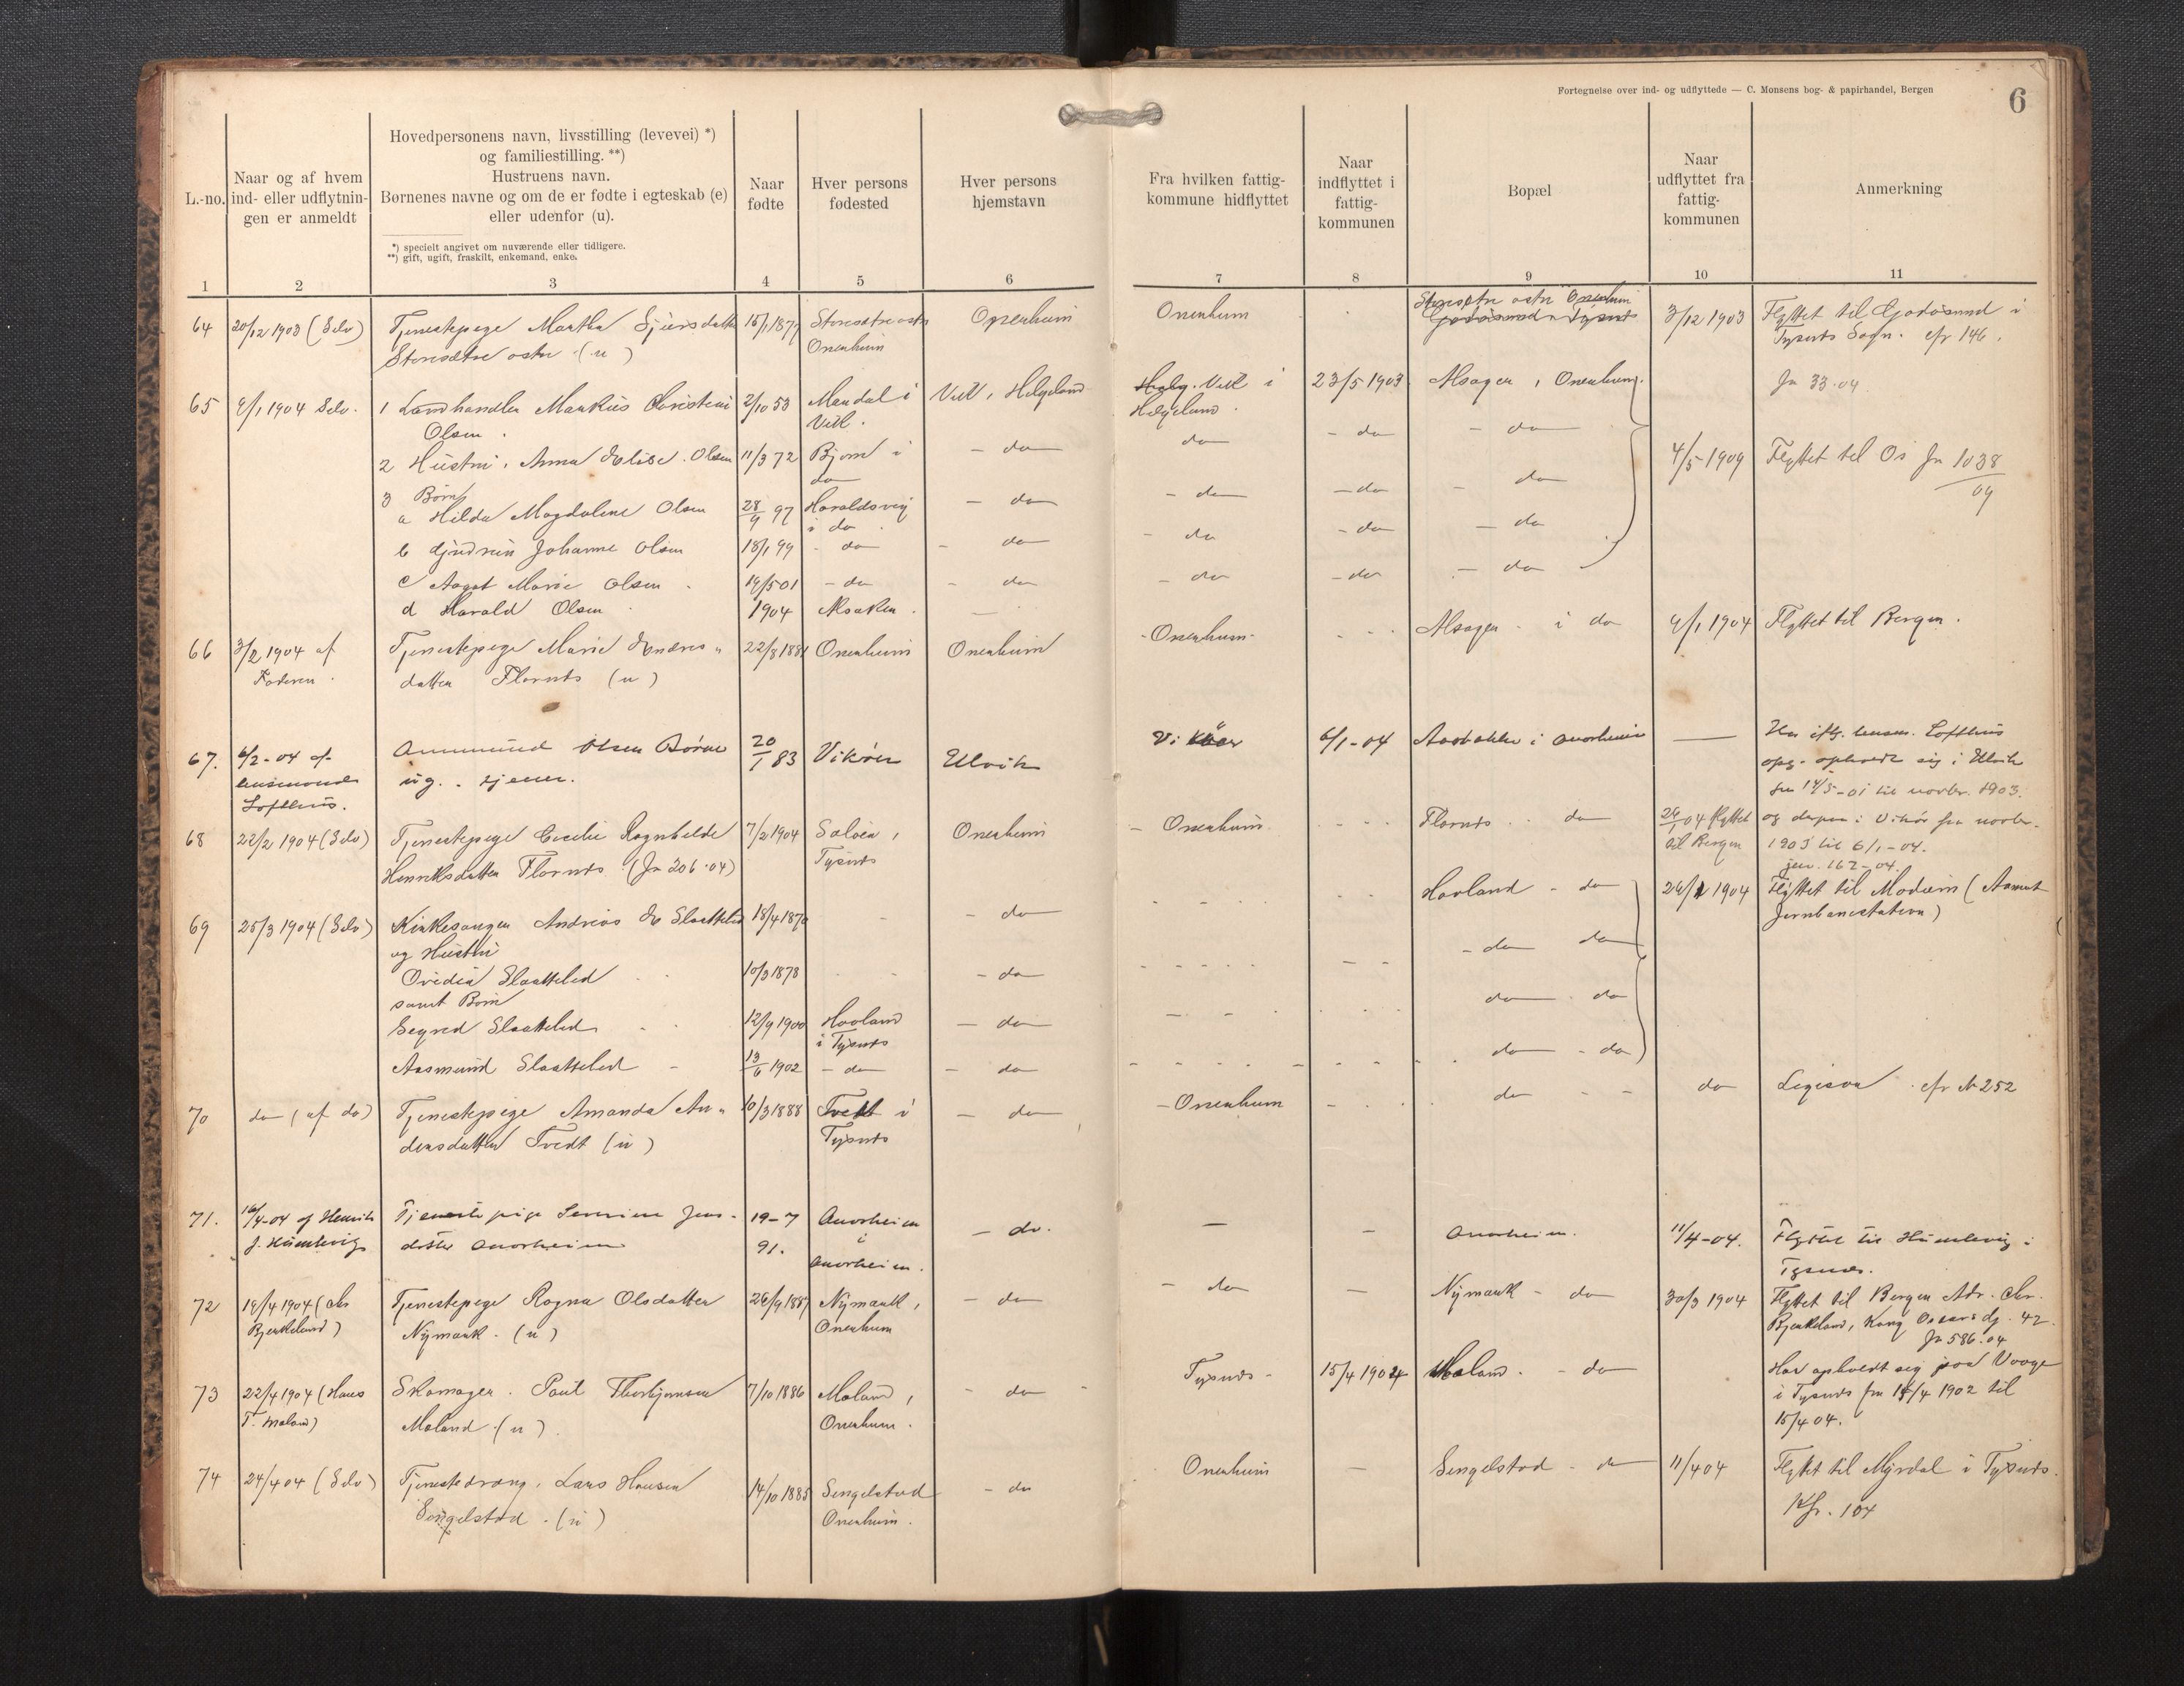 Fortegnelse over ind- og udflyttede — C. Monsens bog- & papirhandel, Bergen
6
L.-no.
Naar og af hvem
ind- eller udflytnin-
gen er anmeldt
Hovedpersonens navn, livsstilling (levevei) *)
og familiestilling. **)
Hustruens navn.
Børnenes navne og om de er fødte i egteskab (e)
eller udenfor (u).
*) specielt angivet om nuværende eller tidligere.
**) gift, ugift, fraskilt, enkemand, enke.
Naar
fødte
Hver persons
fødested
Hver persons
hjemstavn
Fra hvilken fattig-
kommune hidflyttet
Naar
indflyttet i
fattig-
kommunen
Bopæl
Naar
udflyttet fra
fattig-
kommunen
Anmerkning
1 2 3 4 5 6 7 8 9 10 11
64 20/12 1903 (Selv) Tjenestepige Martha Sjursdatter 15/1 1877 Storesætre østr Onenheim Onenheim Storesætre østr Onenheim 3/12 1903 Flyttet til Godøsund i
Storesætre østr (u) Onenheim Godøsund Tysnes Tysnes Sogn. cfr 146.
65 9/1 1904 Selv. 1 Landhandler Markus Christian 2/10 53 Mendal i Vill i Helgeland Helg. Vill i 23/5 1903 Alsager i Onenheim. Jn 33.04
Olsen. Vill. Helgeland.
2 Hustru. Anna Elise Olsen 11/3 72 Bjørn i – do do – do – do 4/5 1909 Flyttet til Os Jn 1038/09
do
3 Børn
a Hilda Magdalene Olsen 28/9 97 Haraldsvig – do – do – do – do
i do
b Gjudrun Johanne Olsen 18/1 99 – do – do – do – do – do
c Aagot Marie Olsen 19/5 01 – do – do – do – do – do
d Harald Olsen 1904 Alsaker. —
66 3/2 1904 af Tjenestepige Marie Endres- 22/8 1881 Onenheim Onenheim Onenheim Alsager i do 9/1 1904 Flyttet til Bergen.
Faderen. datter Flornes (u)
67. 6/2-04 af Ommund Olsen Børve 20/1 83 Vikør Ulvik Vikør 6/1-04 Aarbakke i Onarheim — Har iflg. lensm. Lofthus
lensmand ug. tjener. opg. opholdt sig i Ulvik
Lofthus. fra 14/5-01 til novbr. 1903.
68 22/2 1904 (Selv) Tjenestepige Cecilie Ragnhilde 7/2 1904 Søløen i Onenheim – Onenheim Flornes do 26/1 04 flyttet og derpaa i Vikør fra novbr.
Henriksdatter Flornes (Jn 206.04) Tysnes til Bergen 1903 til 6/1-04.
jnr. 162-04.
69 25/3 1904 (Selv) Kirkesanger Andreas E Slaattelid 18/4 1870 – do Hovland – do 24/2 1904 Flyttet til Modum (Aamot
og Hustru Jernbanestation)
Ovidia Slaattelid 10/3 1878 – do – do do
samt Børn
Sigrid Slaattelid 12/9 1900 Hovland – do do do
i Tysnes
Aasmund Slaattelid 13/6 1902 – do – do do – do
70 do (af do) Tjenestepige Amanda An- 10/3 1888 Tvedt i – do – Onenheim do do Ligesaa cfr N 252
dersdatter Tvedt (u) Tysnes
71. 16/4-04 af Henrik Tjenestepige Severine Jens- 19-7 Onarheim – do. — – Onarheim. 11/4-04. Flyttet til Humlevig i
J. Humlevig datter Onarheim 91. i Tysnes.
Onarheim.
72 19/4 1904 (Chr Tjenestepige Ragna Olsdatter 26/9 1887 Nymark i – do – do — Nymark – do 30/3 1904 Flyttet til Bergen Adr. Chr.
Bjerkeland) Nymark. (u) Onenheim Bjerkeland, Kong Oscars g. 42.
Jn 586.04
73 22/4 1904 (Hans Skomager. Paul Thorbjørnsen 7/10 1886 Moland i – do Tysnes – 15/4 1904 Moland. – do Har opholdt sig paa Vaage
T. Moland) Moland (u). Onenheim. i Tysnes fra 14/4 1902 til
15/4 04.
74 24/4 04 (Selv) Tjenestedreng. Lars Hansen 14/10 1885 Singelstad – do Onenheim — Singelstad – do 11/4 04 Flyttet til Myrdal i Tysnes.
Singelstad (u) Onenheim. Kfr. 104